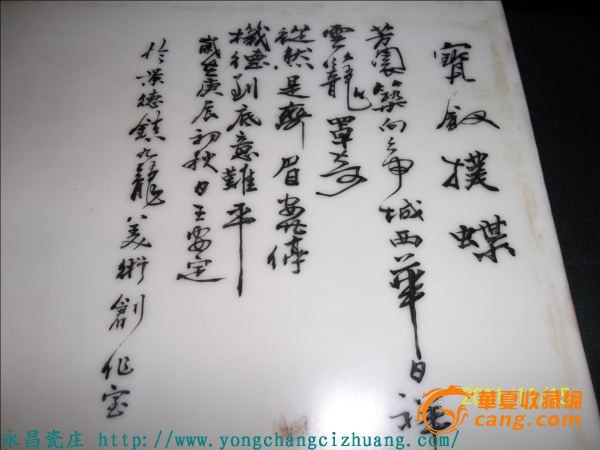 寶釵撲蝶
芳園築向帝城西華日祥
雲籠罩奇
縱然是齊眉停
機德到底意難平
歲在庚辰初秋日王安定
於景德鎮九龍美術創作室
華夏收藏網
cang.com
永昌瓷庄 http://www.yongchangcizhuang.com/